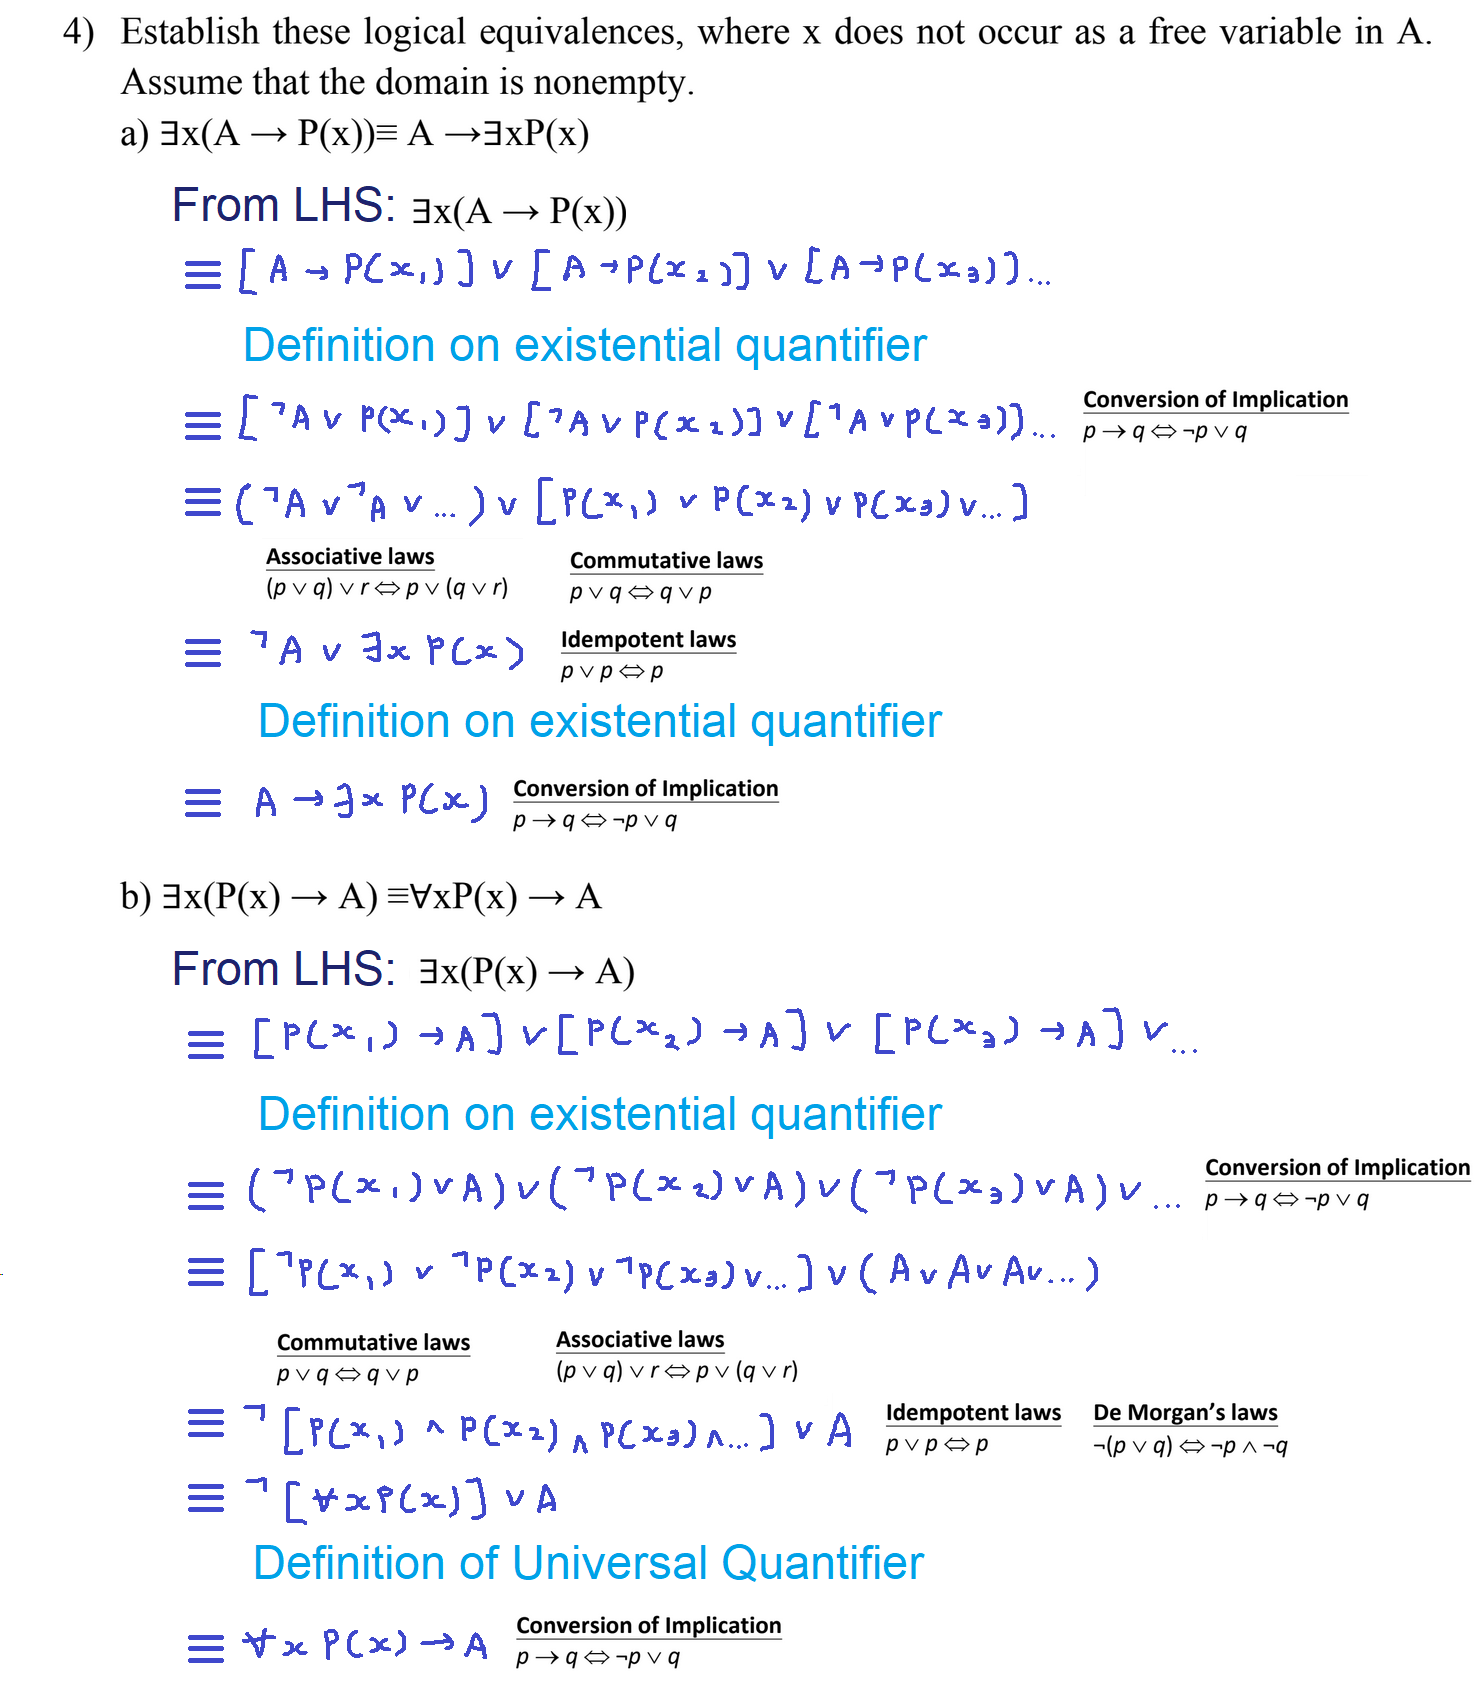 4) Establish these logical equivalences, where x does not occur as a free variable in A.
Assume that the domain is nonempty.
a) ∃x(A → P(x))≡ A →∃xP(x)
From LHS: ∃x(A → P(x))
≡ [A → P(x₁)] ∨ [A → P(x₂)] ∨ [A → P(x₃)]...
Definition on existential quantifier
≡ [¬A ∨ P(x₁)] ∨ [¬A ∨ P(x₂)] ∨ [¬A ∨ P(x₃)]... Conversion of Implication
p → q ⇔ ¬p ∨ q
≡ (¬A ∨ ¬A ∨ ...) ∨ [P(x₁) ∨ P(x₂) ∨ P(x₃) ∨ ...]
Associative laws Commutative laws
(p ∨ q) ∨ r ⇔ p ∨ (q ∨ r) p ∨ q ⇔ q ∨ p
≡ ¬A ∨ ∃x P(x) Idempotent laws
p ∨ p ⇔ p
Definition on existential quantifier
≡ A → ∃x P(x) Conversion of Implication
p → q ⇔ ¬p ∨ q
b) ∃x(P(x) → A) ≡∀xP(x) → A
From LHS: ∃x(P(x) → A)
≡ [P(x₁) → A] ∨ [P(x₂) → A] ∨ [P(x₃) → A] ∨ ...
Definition on existential quantifier
≡ (¬P(x₁) ∨ A) ∨ (¬P(x₂) ∨ A) ∨ (¬P(x₃) ∨ A) ∨ ... Conversion of Implication
p → q ⇔ ¬p ∨ q
≡ [¬P(x₁) ∨ ¬P(x₂) ∨ ¬P(x₃) ∨ ...] ∨ (A ∨ A ∨ A ∨ ...)
Commutative laws Associative laws
p ∨ q ⇔ q ∨ p (p ∨ q) ∨ r ⇔ p ∨ (q ∨ r)
≡ ¬[P(x₁) ∧ P(x₂) ∧ P(x₃) ∧ ...] ∨ A Idempotent laws De Morgan's laws
p ∨ p ⇔ p ¬(p ∨ q) ⇔ ¬p ∧ ¬q
≡ ¬[∀xP(x)] ∨ A
Definition of Universal Quantifier
≡ ∀x P(x) → A Conversion of Implication
p → q ⇔ ¬p ∨ q